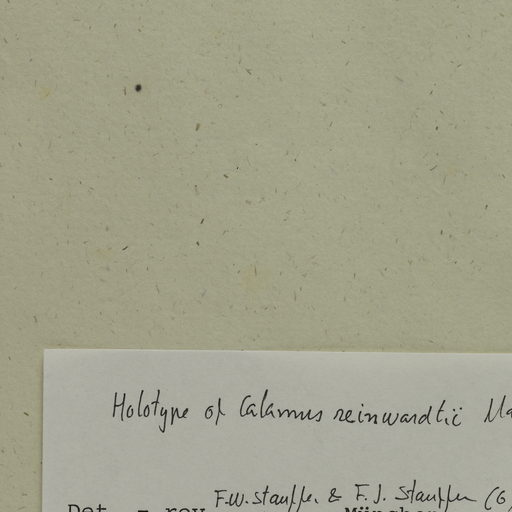 Holotype of Calamus reinwardtii Ma
F.W. Stauffer & F. J. Stauffer (G
Det. - rev. Münche